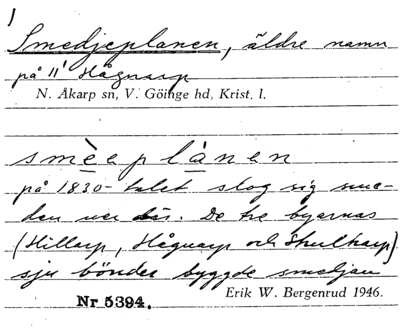 1
Smedjeplanen, äldre namn
på 11¹ Hågnarp
N. Åkarp sn, V. Göinge hd, Krist. l.
smèeplànen
på 1830-talet slog sig sme-
den ner där. De tre byarnas
(Hillarp, Hågnarp och Skulltarp)
sju bönder byggde smedjan
Erik W. Bergenrud 1946.
Nr 5394.